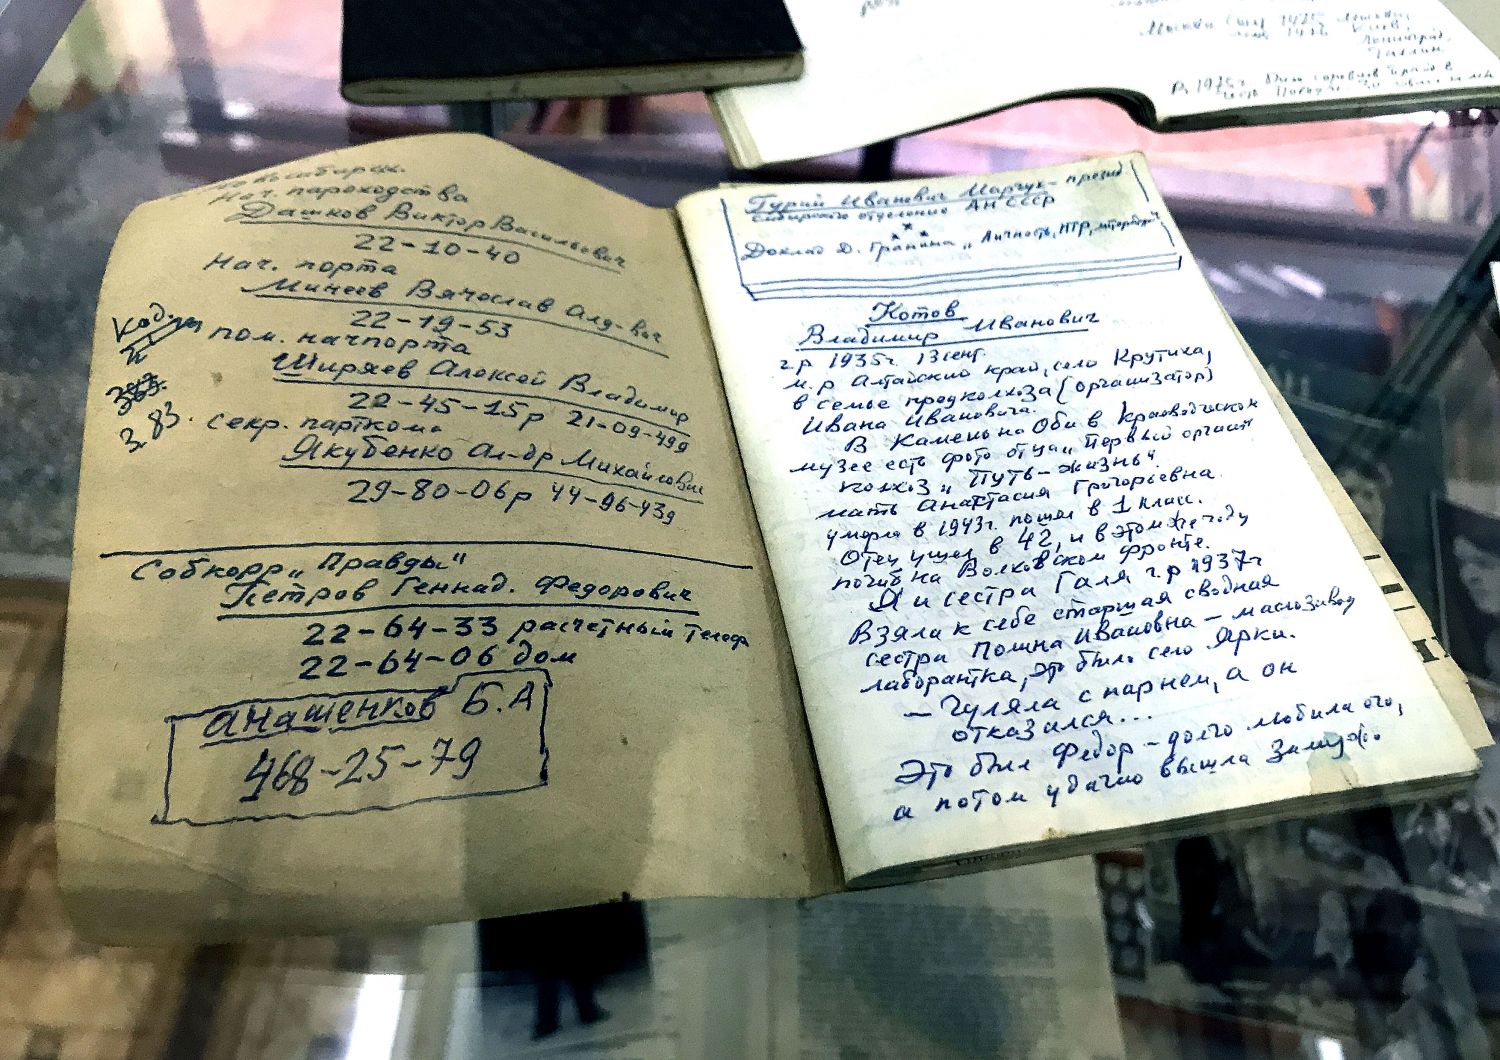 Нач. пароходства
Дашков Виктор Васильевич
22-10-40
Нач. порта
Минеев Вячеслав Алд-вич
22-19-53
пом. начпорта
Ширяев Алексей Владимир
22-45-15р 21-09-49д
секр. парткома
Якубенко Ал-др Михайлович
29-80-06р 44-96-43д
Код.
383.
3.83.
Собкорр „Правды"
Петров Геннад. Федорович
22-64-33 расчетный телеф
22-64-06 дом
Анашенков Б.А
468-25-79
Гурий Иванович Марчук - презид.
Сибирского отделение АН СССР
× × ×
Доклад Д. Гранина „Личность, НТР,
Котов
Владимир Иванович
г.р 1935г. 13 сент
м.р Алтайский край, село Крутиха,
в семье предколхоза (организатор)
Ивана Ивановича.
В Камень на Оби в краеведческом
музее есть фото отца „Первый организ"
колхоз „Путь - жизнь".
мать Анастасия Григорьевна.
умерла в 1943г. пошел в 1 класс.
Отец ушел в 42, и в этом же году
погиб на Волховском фронте.
Я и сестра Галя г.р 1937г
Взяла к себе старшая сводная
сестра Полина Ивановна - маслозавод
лаборантка, это было село Ярки.
- Гуляла с парнем, а он
отказался...
Это был Федор - долго любила его,
а потом удачно вышла замуж.
Москва
Ленинград,
Таллин
В 1975г.